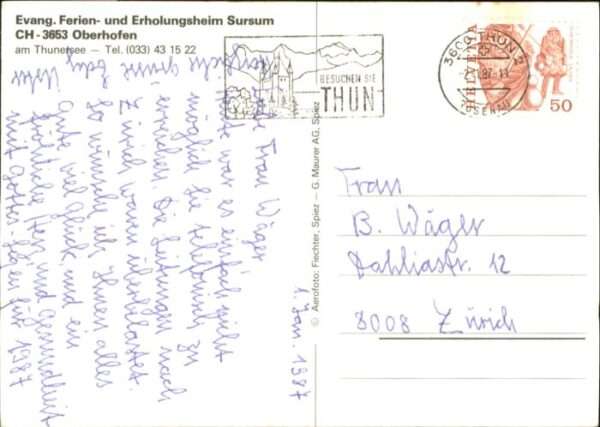 Evang. Ferien- und Erholungsheim Sursum
CH-3653 Oberhofen
am Thunersee — Tel. (033) 43 15 22
BESUCHEN SIE
THUN
3600 THUN
HELVETIA
50
© Aerofoto: Fiechter, Spiez — G. Maurer AG, Spiez
1. Jan. 1987
Frau Wäger
war es einfach nicht
möglich Sie telefonisch zu
erreichen. Die Leitungen nach
Zürich waren überbelastet.
So wünsche ich Ihnen alles
Gute viel Glück und ein
fröhliches Herz und Gesundheit
mit Gottes Segen für 1987
Frau
B. Wäger
Dahliastr. 12
8008 Zürich